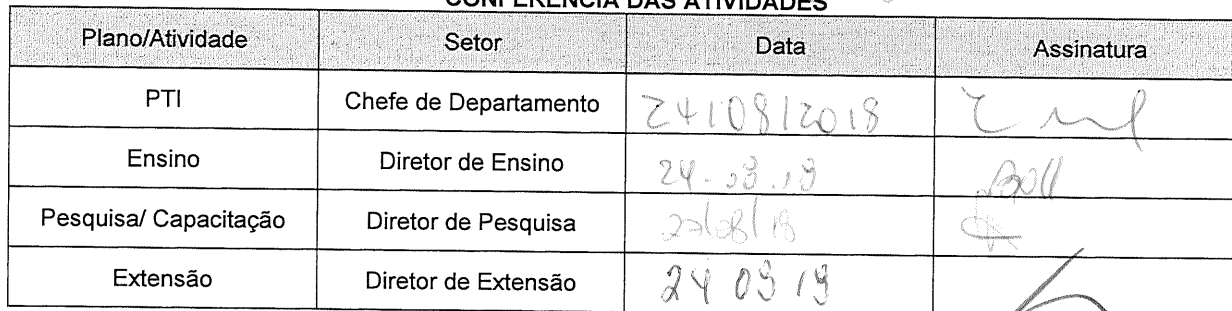 CONFERÊNCIA DAS ATIVIDADES
Plano/Atividade Setor Data Assinatura
PTI Chefe de Departamento 24/08/2018
Ensino Diretor de Ensino
Pesquisa/ Capacitação Diretor de Pesquisa
Extensão Diretor de Extensão